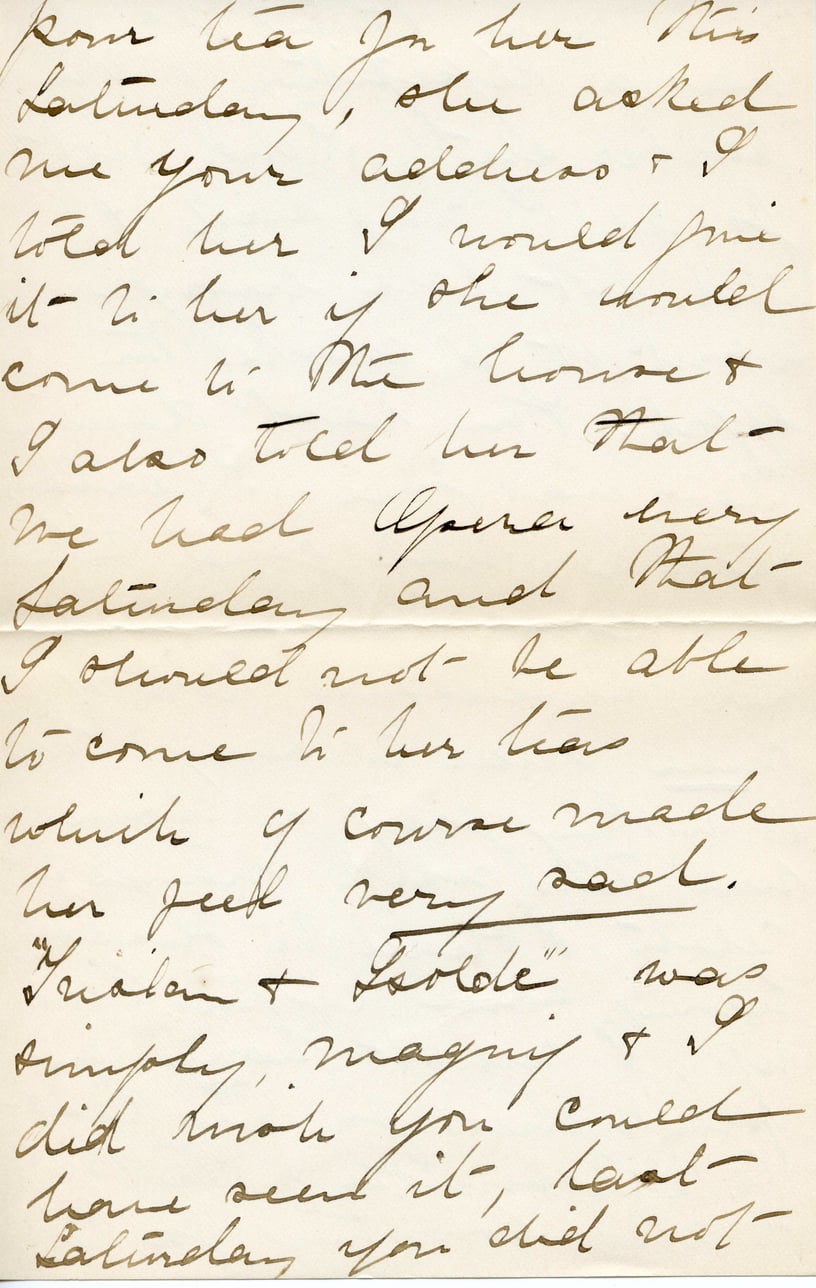 pour tea for her this
Saturday, she asked
me your address + I
told her I would give
it to her if she would
come to the house +
I also told her that
we had Opera every
Saturday and that
I should not be able
to come to her teas
which of course made
her feel very sad.
"Tristan + Isolde" was
simply, magnif + I
did wish you could
have seen it, last
Saturday you did not